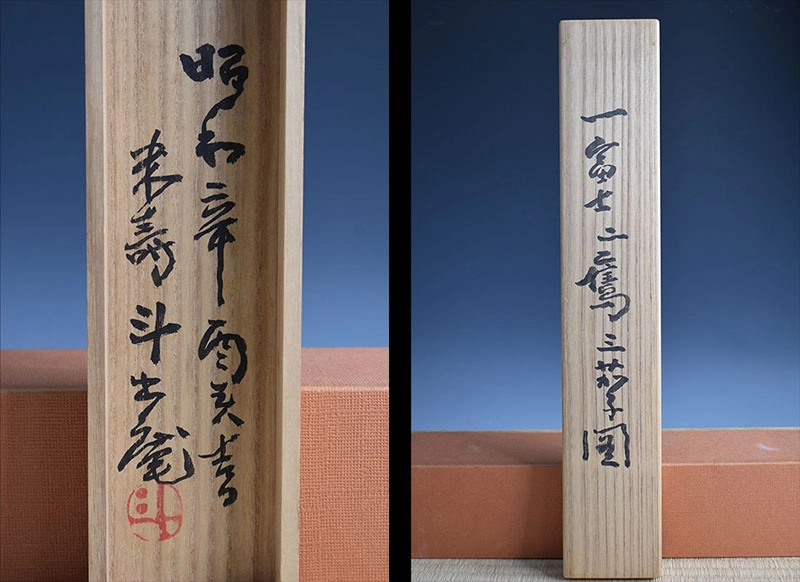 昭和辛酉 書
米壽斗出庵
一富士二鷹三茄子図